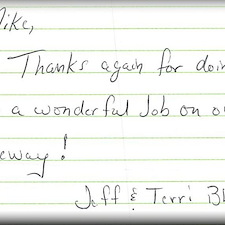 Mike,
Thanks again for doin
a wonderful Job on o
eway!
Jeff & Terri B